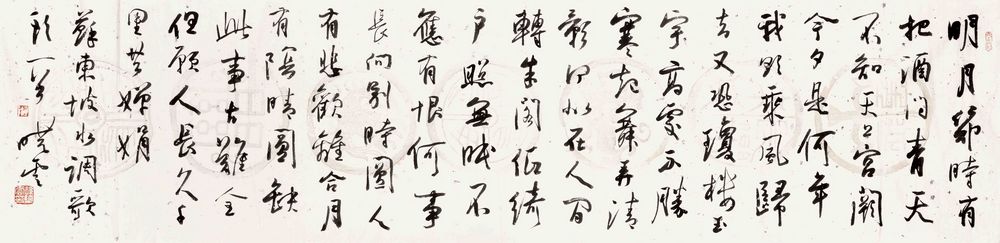 明月幾時有
把酒问青天
不知天上宮闕
今夕是何年
我欲乘風歸
去又恐瓊楼玉
宇高處不勝
寒起舞弄清
影何似在人间
轉朱阁低绮
户照無眠不
應有恨何事
長向别時圓人
有悲歡離合月
有陰晴圓缺
此事古難全
但願人長久千
里共嬋娟
蘇東坡水調歌
头一首